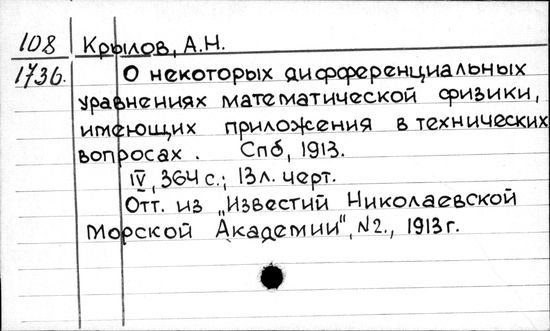 108 Крылов, А.Н.
1736. О некоторых дифференциальных
уравнениях математической физики,
имеющих приложения в технических
вопросах. Спб, 1913.
IV, 364 с.; 13 л. черт.
Отт. из „Известий Николаевской
Морской Академии", №2., 1913 г.